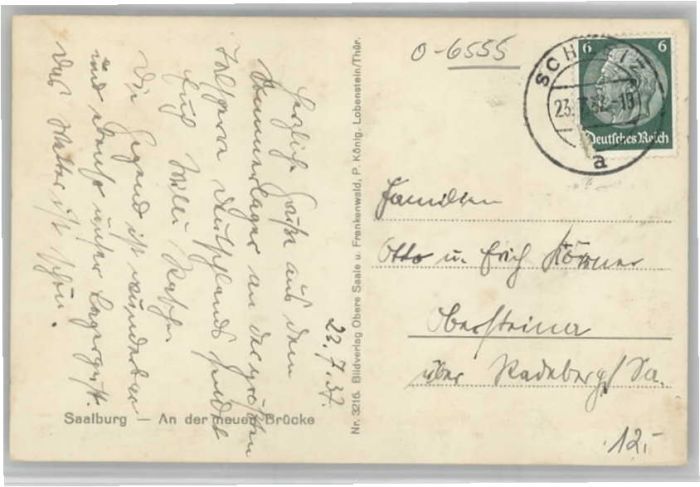 22.7.37.
Herzliche Grüße aus dem
Sommerlager an der größten
Talsperre Deutschlands sendet
Euch Willi
Die Gegend ist wunderbar
und ebenso unser Lagergeist.
Das Wetter ist schön.
Saalburg — An der neuen Brücke
Nr. 3215. Bildverlag Obere Saale u. Frankenwald, P. König, Lobenstein/Thür.
0-6555
SCHLEIZ
23.7.37.-18
a
6 6
Deutsches Reich
Familien
Otto u. Erich Körner
Obersteina
über Radeberg/Sa.
12,-